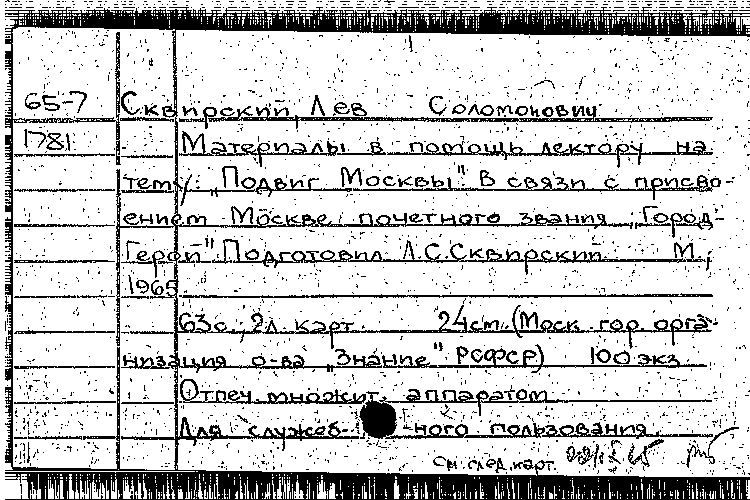 65-7 Сквирский, Лев Соломонович
1781 Материалы в помощь лектору на
тему: "Подвиг Москвы". В связи с присво-
ением Москве почетного звания "Город-
Герой". Подготовил Л.С.Сквирский М.,
1965
63с., 2л. карт. 24см. (Моск. гор. орга-
низация о-ва "Знание" РСФСР) 100 экз.
Отпеч. множит. аппаратом
Для служеб- -ного пользования.
См. след. карт.